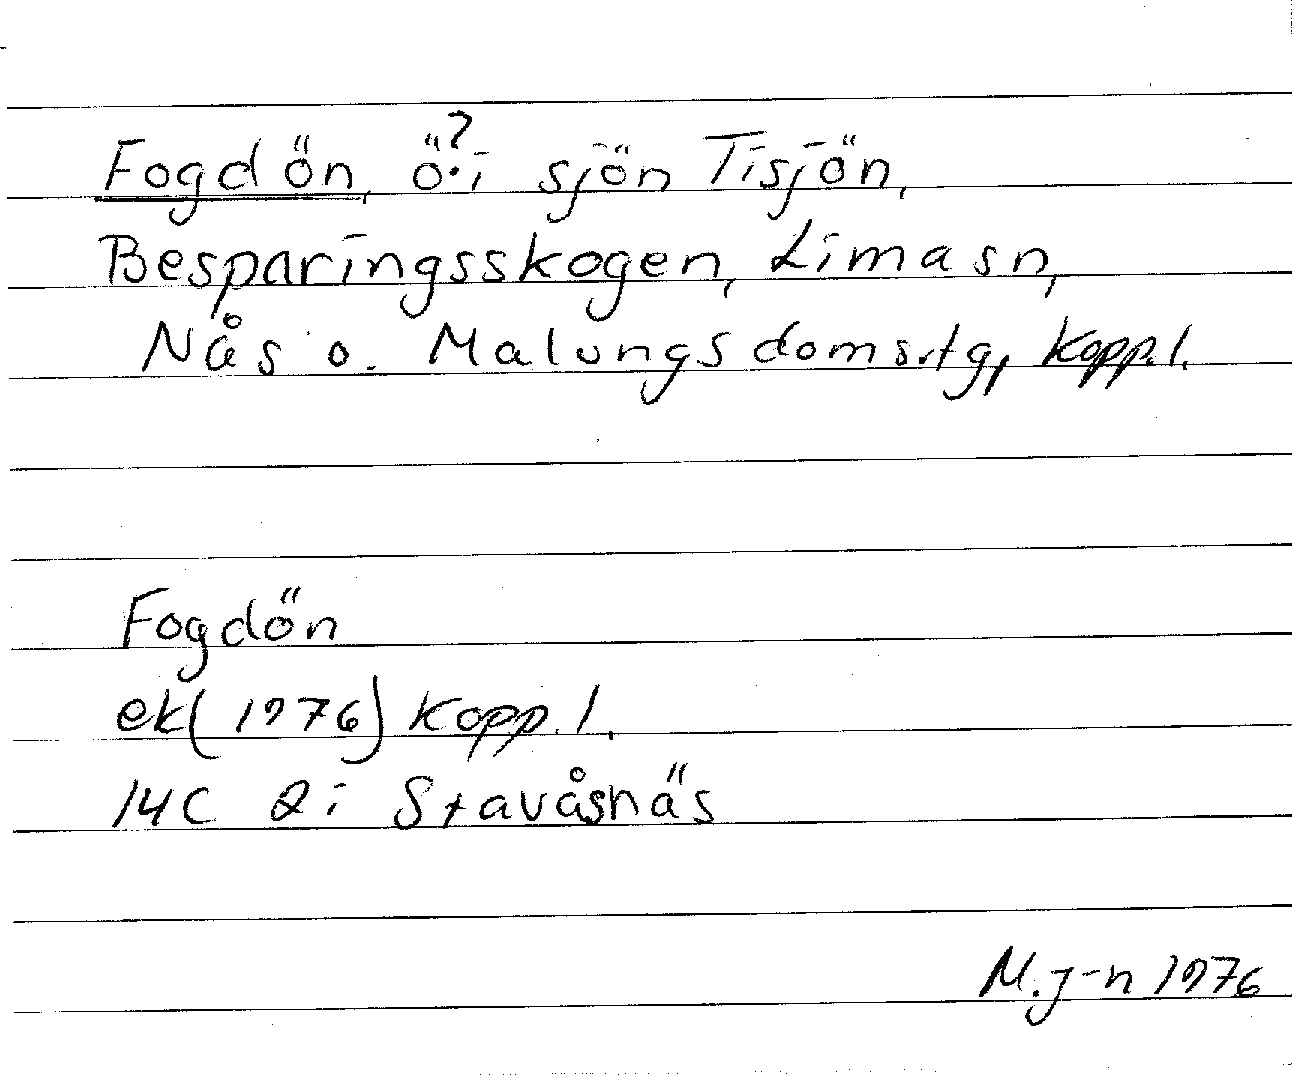 Fogdön, ö? i sjön Tisjön,
Besparingsskogen, Lima sn,
Nås o. Malungs doms.tg, Kopp.l.
Fogdön
ek(1976) Kopp.l.
14C 2i Stavåsnäs
M.J-n 1976